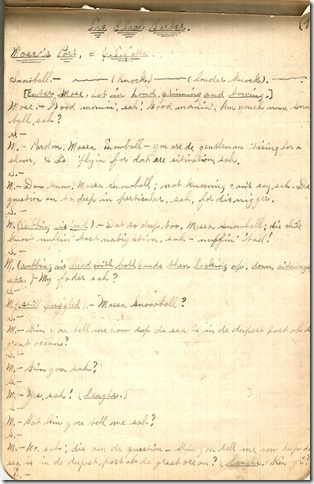 The Black Barber.
Mose's Part, =
Snowball - (Knock) - (Louder Knock) -
[Enter Mose, hat in hand, grinning and bowing.]
Mose. - Good mornin', sah! Good mornin'. Am yousah now Snow
ball, sah?
S. -
M. - Pardon, Massa Snowball - you are de gentleman 'tising for a
slaver, 'n Is 'plyin for dat are sitivation, sah.
S. -
M. - Don know, Massa Snowball; not knowing can't say, sah. Dat
question am to deep in particular, sah, for dis nigger.
S. -
M. (Rubbing his head) - Dat to deep too, Massa Snowball; dis chile
know nuffin 'bout nabigation, sah - nuffin' 't all!
S. -
M. (rubbing his head with both hands then looking up, down, sideways
etc.) - My fader sah?
S. -
M. (still puzzled) - Massa Snowball?
S. -
M. - Kin you tell me now deep de sea is in de deepest part ob de
great ocean?
S. -
M. - Kin you sah?
S. -
M. - Yes, sah! (Laughs.)
S. -
M. - But kin you tell me sah?
S. -
M. - No, sah; dis am de question - Kin you tell me now deep de
sea is in de deepest part ob de great ocean? (Laughs) Kin yo'?
S. -